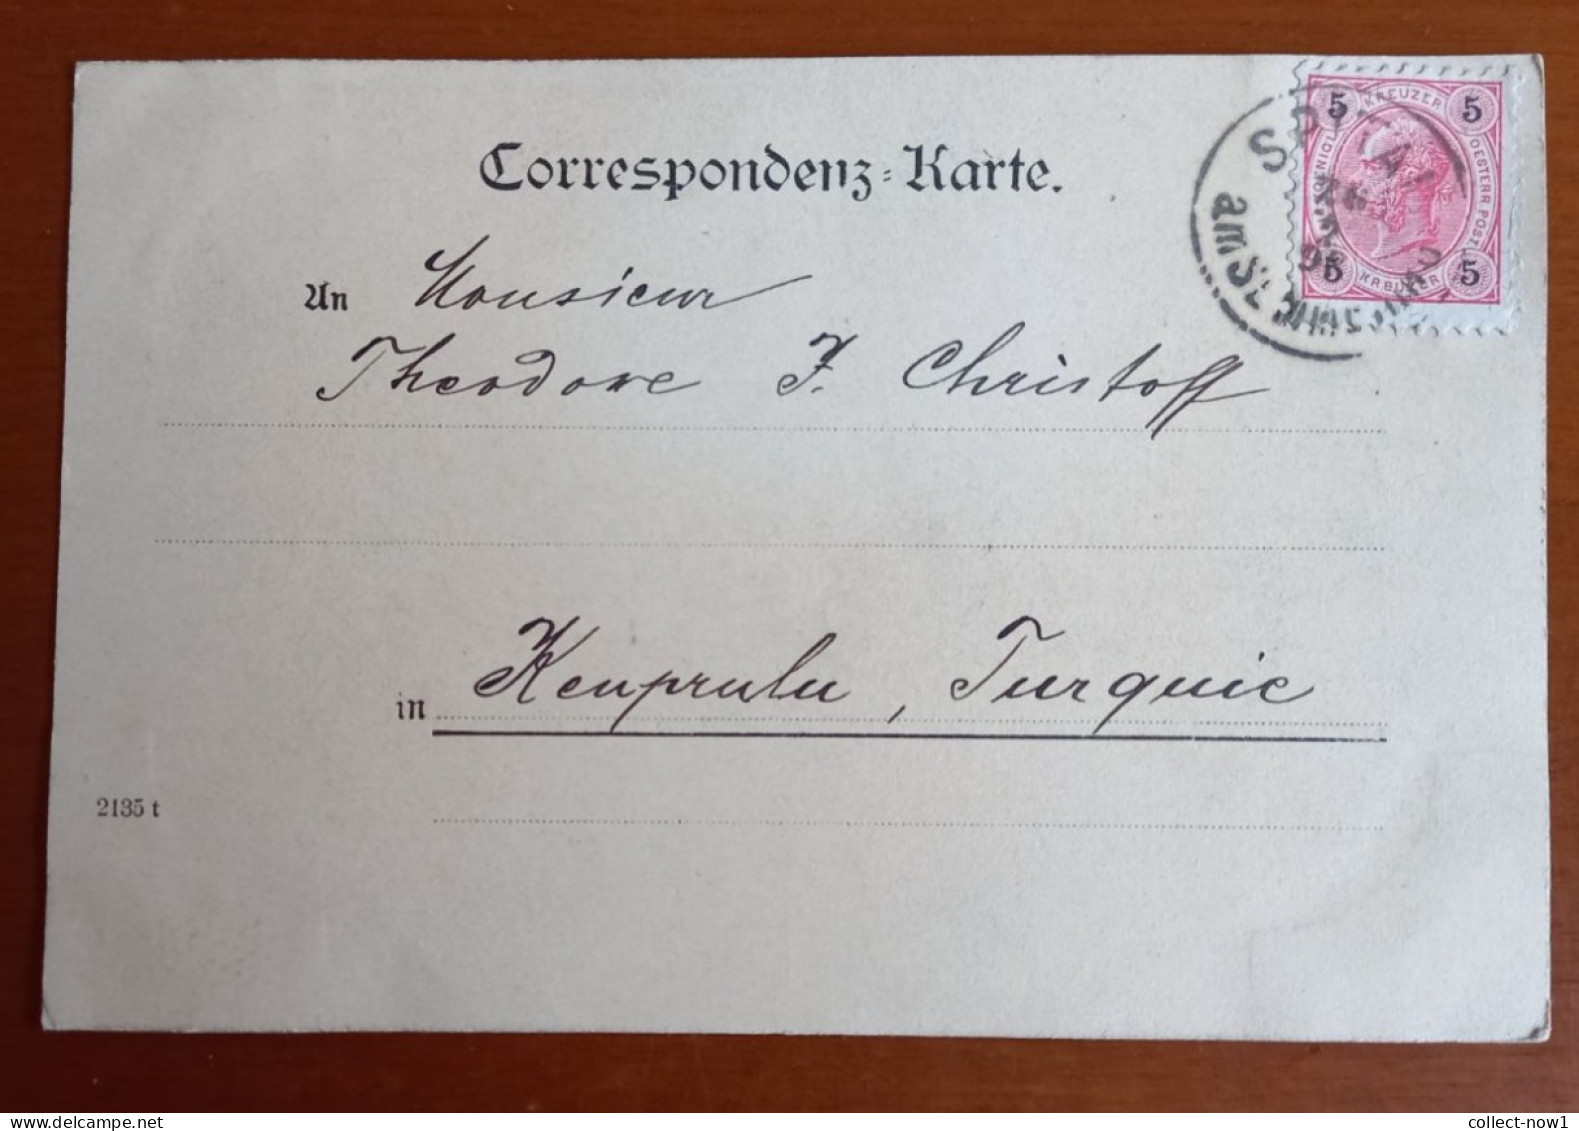 Correspondenz-Karte.
5 KREUZER 5
OESTERR. POST.
5 KREUZER 5
SPITAL
am Semmering
98
An Monsieur
Theodore J. Christoff
in Keuprulu, Turquie
2135 t
www.delcampe.net
collect-now1